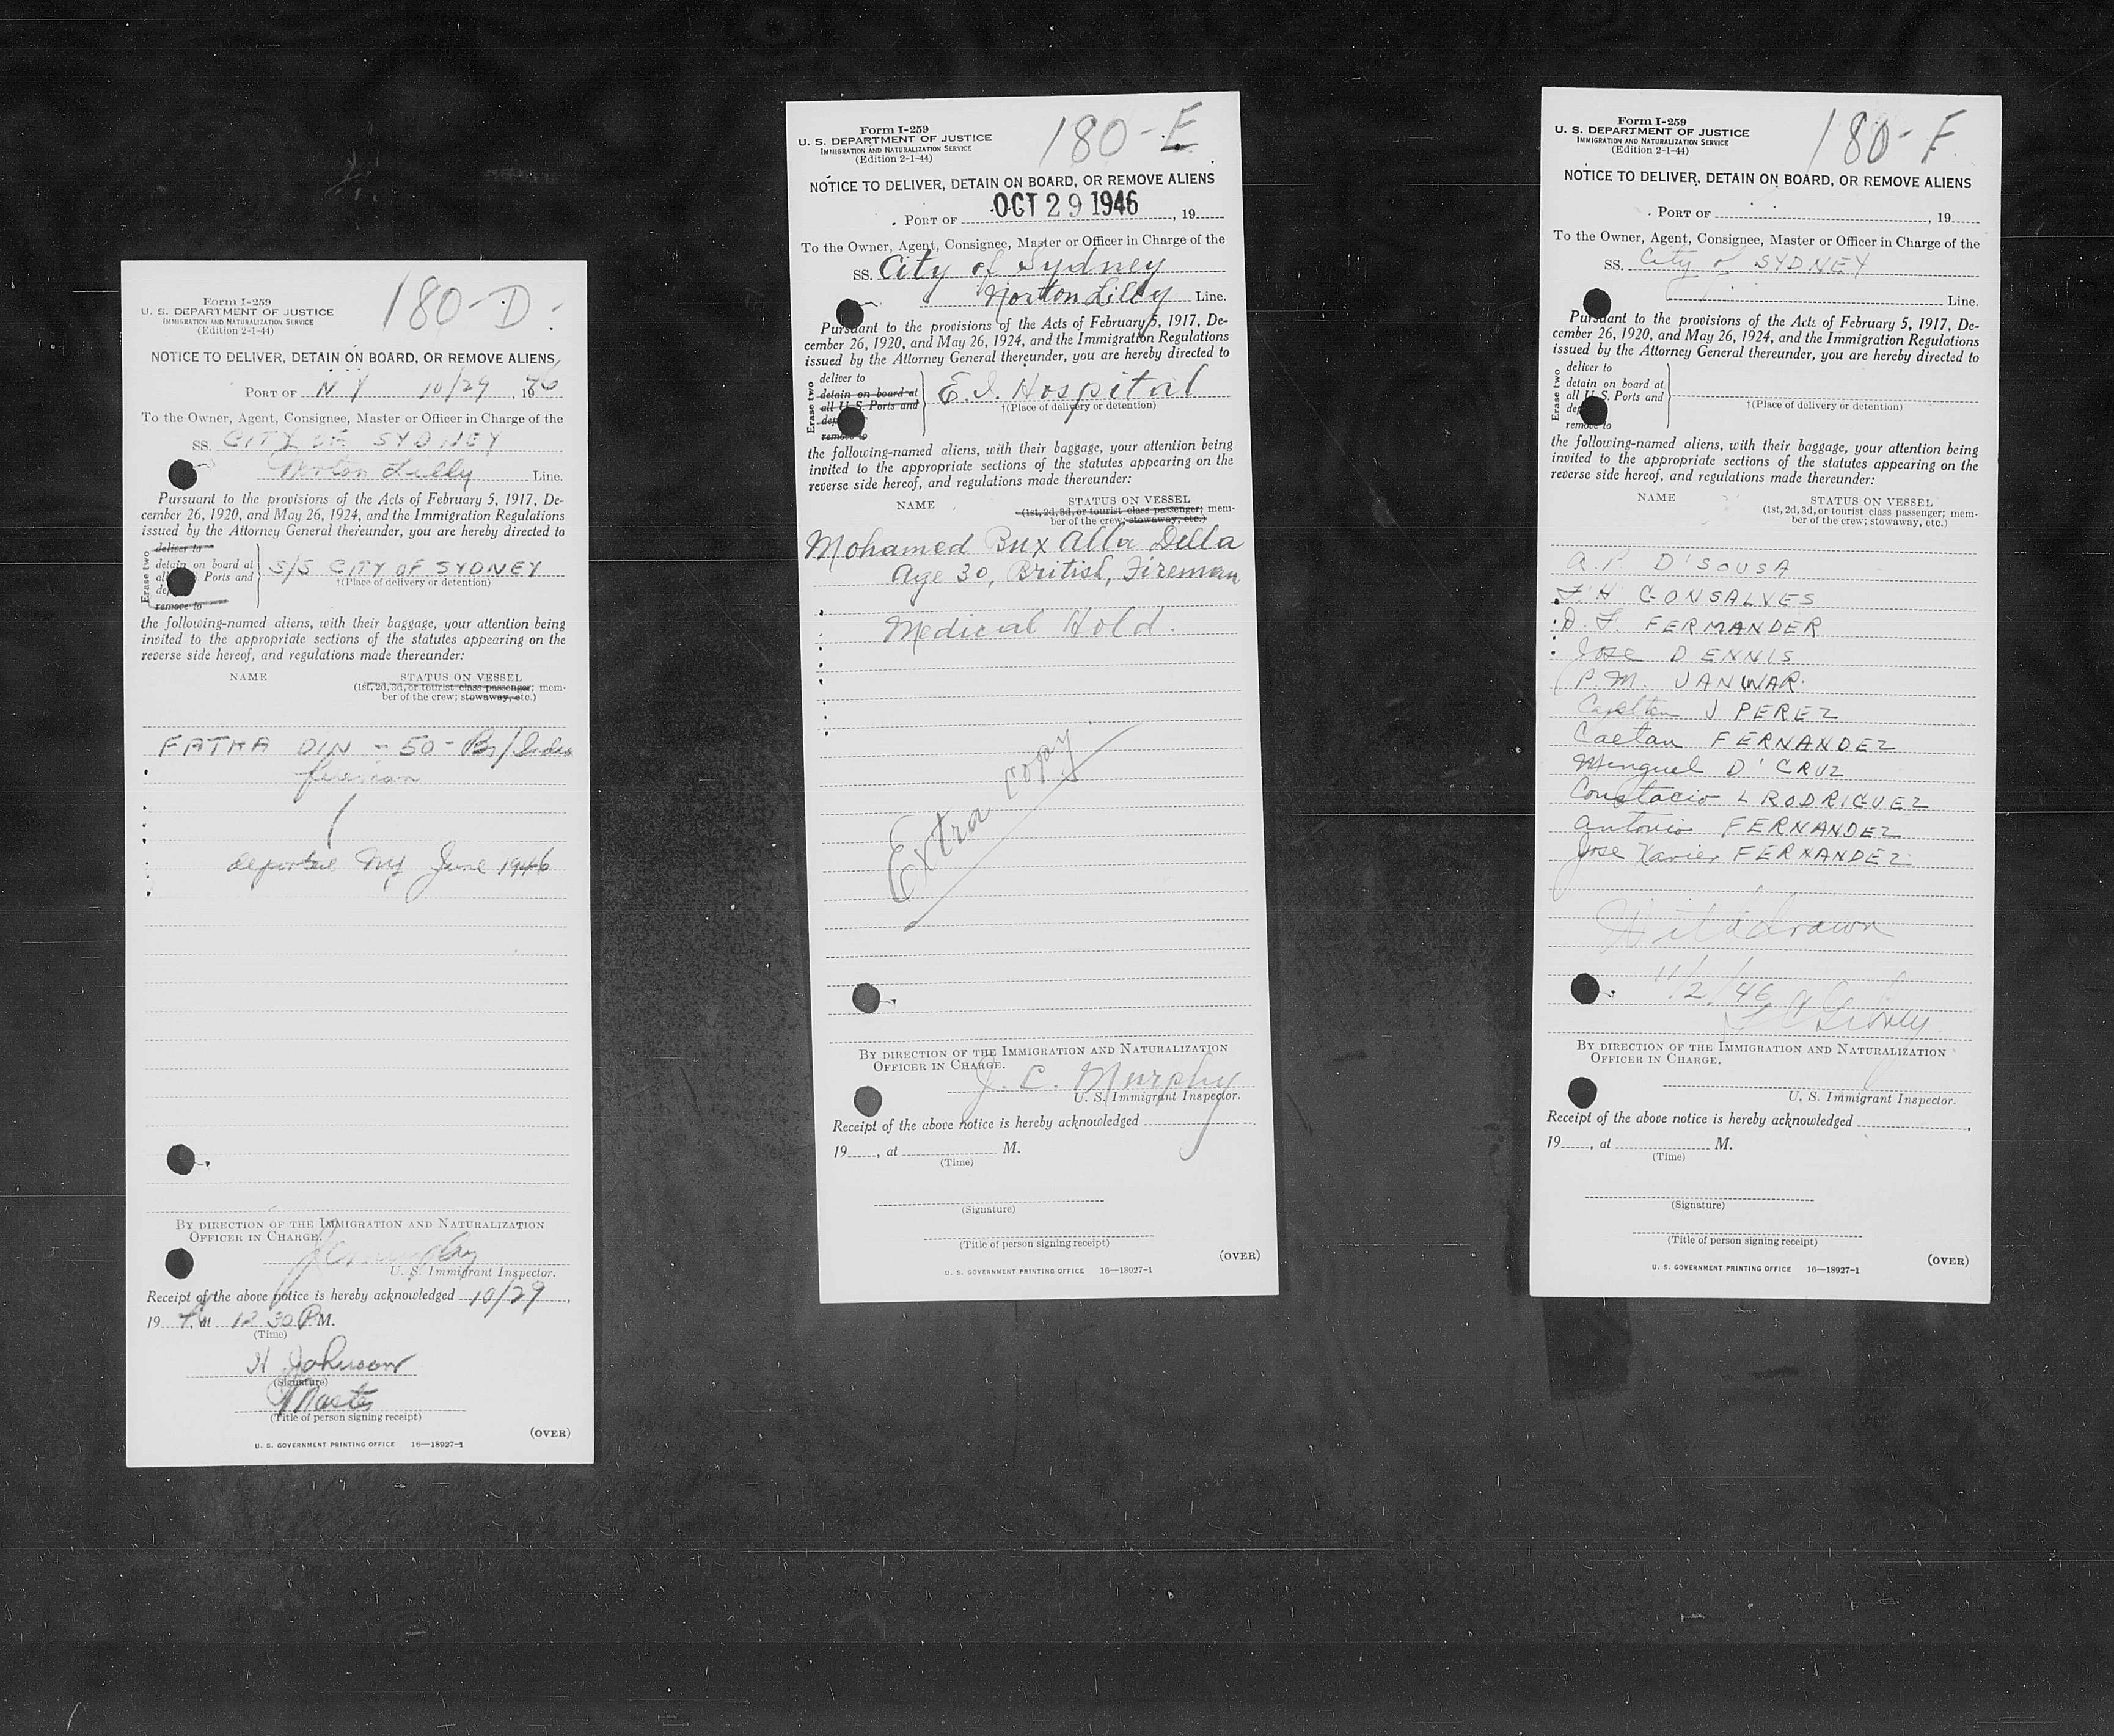 180-D
Form I-259
U. S. DEPARTMENT OF JUSTICE
IMMIGRATION AND NATURALIZATION SERVICE
(Edition 2-1-44)
NOTICE TO DELIVER, DETAIN ON BOARD, OR REMOVE ALIENS
PORT OF N Y 10/29, 1946
To the Owner, Agent, Consignee, Master or Officer in Charge of the
SS. CITY OF SYDNEY
Norton Lilly Line.
Pursuant to the provisions of the Acts of February 5, 1917, De-
cember 26, 1920, and May 26, 1924, and the Immigration Regulations
issued by the Attorney General thereunder, you are hereby directed to
Erase two
deliver to
detain on board at
all Ports and
remove to
S/S CITY OF SYDNEY
†(Place of delivery or detention)
the following-named aliens, with their baggage, your attention being
invited to the appropriate sections of the statutes appearing on the
reverse side hereof, and regulations made thereunder:
NAME STATUS ON VESSEL
(1st, 2d, 3d, or tourist class passenger; mem-
ber of the crew; stowaway, etc.)
FATHA DIN - 50 - Br/India
fireman
deported NY June 1946
BY DIRECTION OF THE IMMIGRATION AND NATURALIZATION
OFFICER IN CHARGE.
U. S. Immigrant Inspector.
Receipt of the above notice is hereby acknowledged 10/29,
1946, at 12 30 P M.
(Time)
H Johnson
(Signature)
Master
(Title of person signing receipt)
(OVER)
U. S. GOVERNMENT PRINTING OFFICE 16—18927-1
180-E
Form I-259
U. S. DEPARTMENT OF JUSTICE
IMMIGRATION AND NATURALIZATION SERVICE
(Edition 2-1-44)
NOTICE TO DELIVER, DETAIN ON BOARD, OR REMOVE ALIENS
PORT OF OCT 29 1946, 19
To the Owner, Agent, Consignee, Master or Officer in Charge of the
SS. City of Sydney
Norton Lilly Line.
Pursuant to the provisions of the Acts of February 5, 1917, De-
cember 26, 1920, and May 26, 1924, and the Immigration Regulations
issued by the Attorney General thereunder, you are hereby directed to
Erase two
deliver to
detain on board at
all U. S. Ports and
remove to
E. I. Hospital
†(Place of delivery or detention)
the following-named aliens, with their baggage, your attention being
invited to the appropriate sections of the statutes appearing on the
reverse side hereof, and regulations made thereunder:
NAME STATUS ON VESSEL
(1st, 2d, 3d, or tourist class passenger; mem-
ber of the crew; stowaway, etc.)
Mohamed Bux Alla Della
Age 30, British, Fireman
Medical Hold.
Extra copy
BY DIRECTION OF THE IMMIGRATION AND NATURALIZATION
OFFICER IN CHARGE.
J. C. Murphy
U. S. Immigrant Inspector.
Receipt of the above notice is hereby acknowledged
19, at M.
(Time)
(Signature)
(Title of person signing receipt)
(OVER)
U. S. GOVERNMENT PRINTING OFFICE 16—18927-1
180-F
Form I-259
U. S. DEPARTMENT OF JUSTICE
IMMIGRATION AND NATURALIZATION SERVICE
(Edition 2-1-44)
NOTICE TO DELIVER, DETAIN ON BOARD, OR REMOVE ALIENS
PORT OF , 19
To the Owner, Agent, Consignee, Master or Officer in Charge of the
SS. City of SYDNEY
Line.
Pursuant to the provisions of the Acts of February 5, 1917, De-
cember 26, 1920, and May 26, 1924, and the Immigration Regulations
issued by the Attorney General thereunder, you are hereby directed to
Erase two
deliver to
detain on board at
all U. S. Ports and
remove to
†(Place of delivery or detention)
the following-named aliens, with their baggage, your attention being
invited to the appropriate sections of the statutes appearing on the
reverse side hereof, and regulations made thereunder:
NAME STATUS ON VESSEL
(1st, 2d, 3d, or tourist class passenger; mem-
ber of the crew; stowaway, etc.)
A. P. D'SOUSA
F H GONSALVES
D. F. FERMANDER
Jose DENNIS
P. M. JANWAR
J PEREZ
Caetan FERNANDEZ
Minguel D'CRUZ
Constacio L RODRIGUEZ
Antonio FERNANDEZ
Jose Xavier FERNANDEZ
Withdrawn
11/2/46
BY DIRECTION OF THE IMMIGRATION AND NATURALIZATION
OFFICER IN CHARGE.
U. S. Immigrant Inspector.
Receipt of the above notice is hereby acknowledged
19, at M.
(Time)
(Signature)
(Title of person signing receipt)
(OVER)
U. S. GOVERNMENT PRINTING OFFICE 16—18927-1